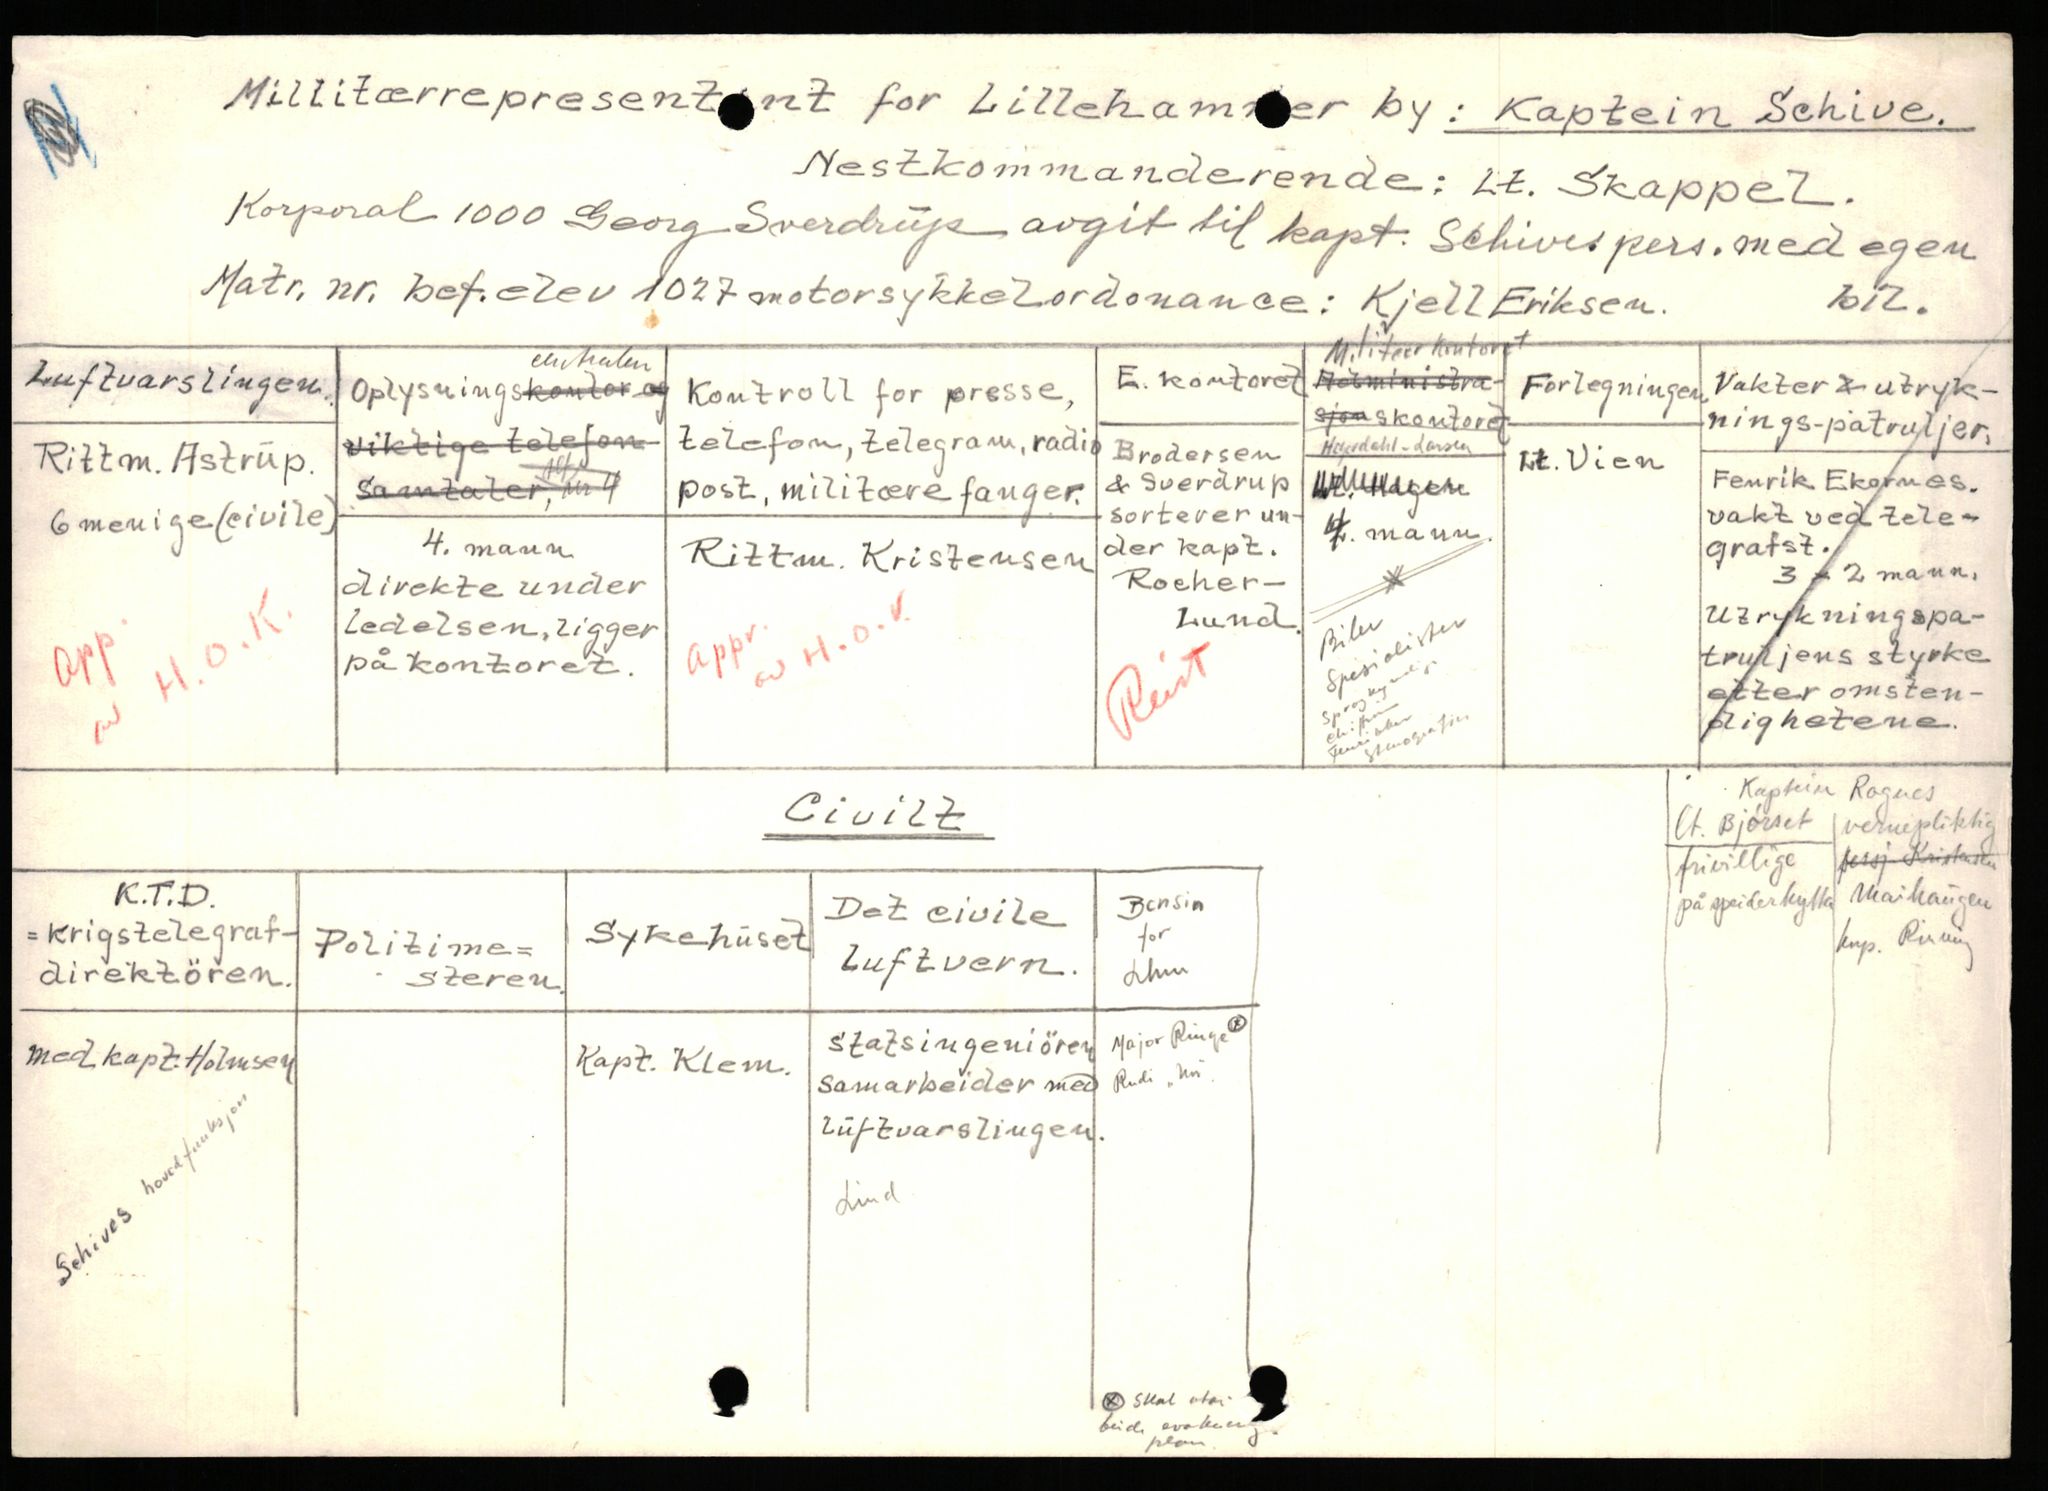 Millitærrepresentant for Lillehammer by: Kaptein Schive.
Nestkommanderende: Lt. Skappel.
Korporal 1000 Georg Sverdrup avgit til kapt. Schives pers. med egen
bil.
Matr. nr. bef. elev 1027 motorsykkelordonance: Kjell Eriksen.
Luftvarslingen.
Rittm. Astrup.
6 menige (civile)
app.
av H.O.K.
centralen
Oplysningskontor og
viktige telefon-
samtaler,
4. mann
direkte under
ledelsen, ligger
på kontoret.
Kontroll for presse,
telefon, telegram, radio
post, militære fanger.
Rittm. Kristensen
appr.
av H.O.K.
E. kontoret
Brodersen
& Sverdrup
sorterer un-
der kapt.
Rocher-
Lund.
Reist
Militær kontoret
Administra-
sjonskontoret
Heyerdahl-Larsen
Lt. Hagen
mann.
Biler
Spesialister
stenografer
Forlegningen
Lt. Vien
Vakter & utryk-
nings-patruljer.
Fenrik Ekornes.
vakt ved tele-
grafst.
3 - 2 mann.
Utrykningspa-
truljens styrke
etter omsten-
dighetene.
Civilt
Kaptein Rognes
Lt. Bjørset
frivillige
på speiderhytta
vernepliktig
Kristensen
Maihaugen
K.T.D.
= krigstelegraf-
direktören.
med kapt. Holmsen
Schives hovedfunksjon
Politime=
steren.
Sykehuset
Kapt. Klem.
Det civile
luftvern.
statsingeniören
samarbeider med
luftvarslingen.
Lind
Bensin
for
Lhmr
Major Ringe ⊗
Rudi
⊗ Skal utar-
beide evakuerings-
plan.